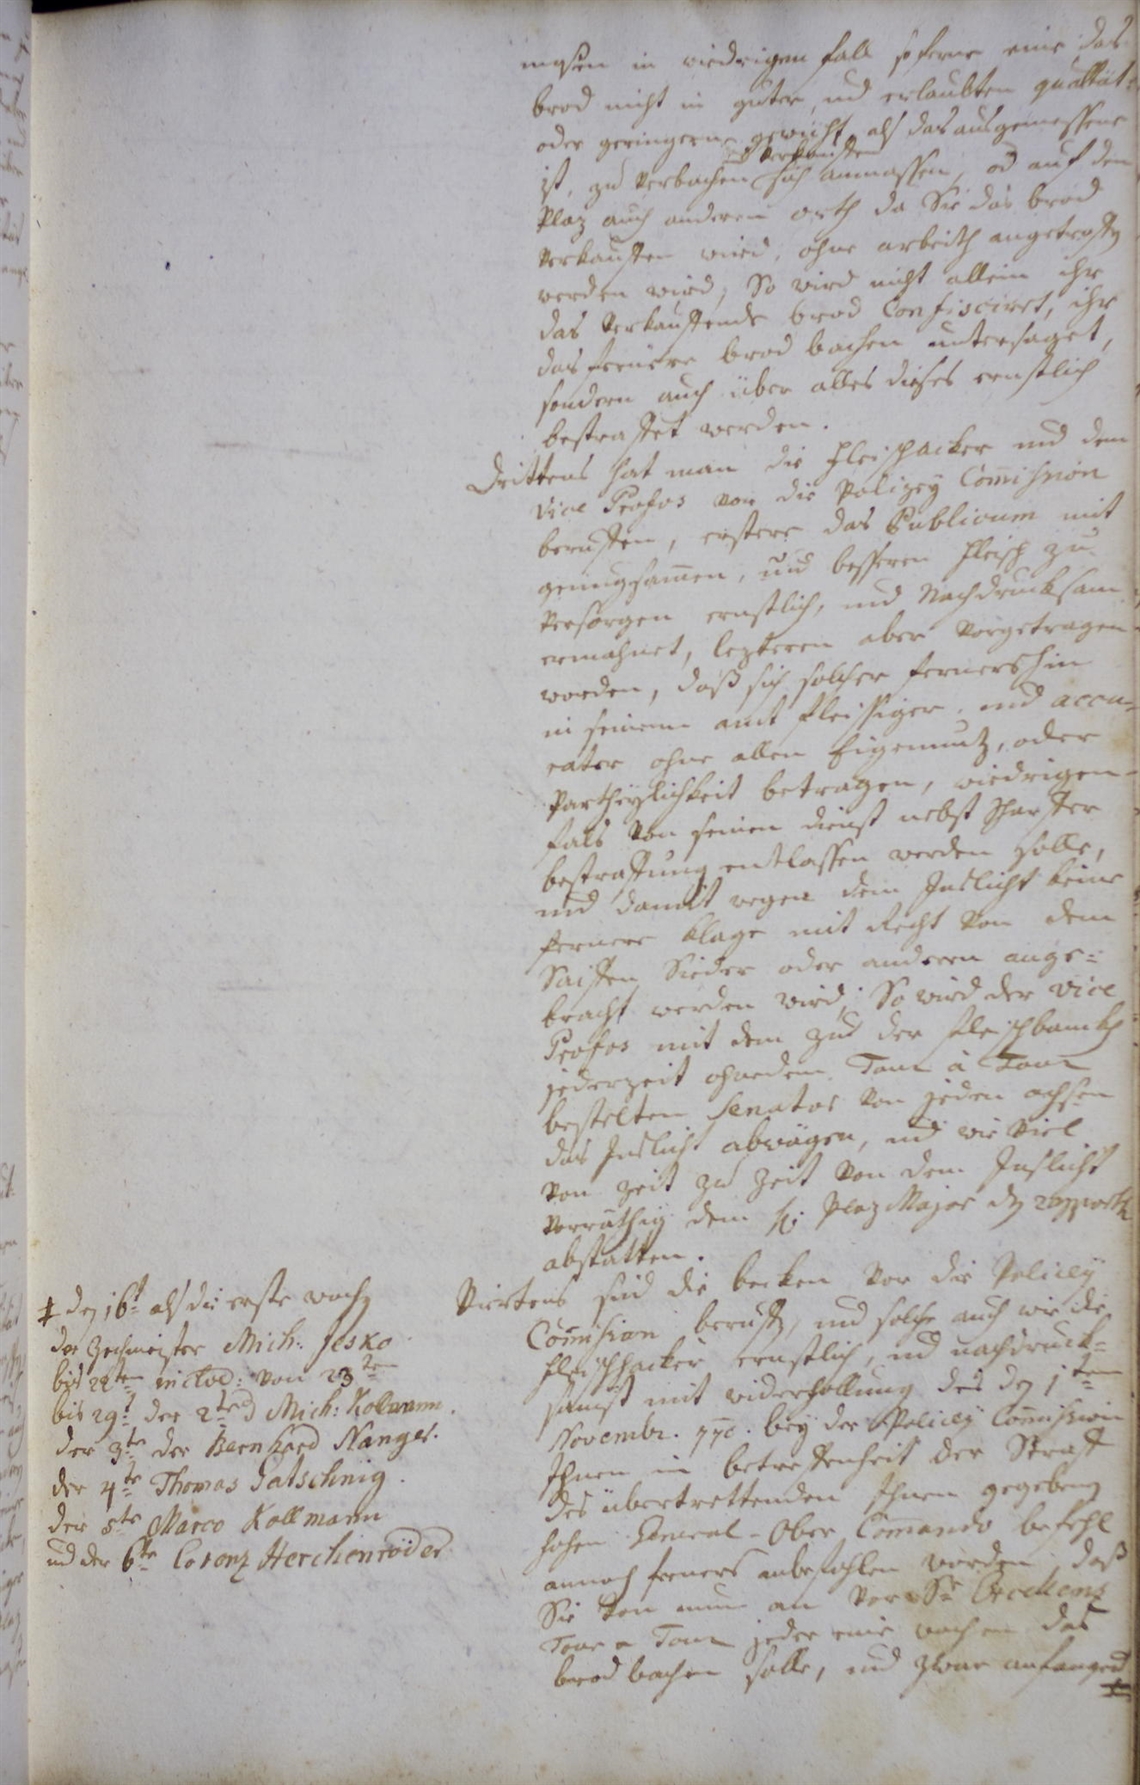 in wiedrigen fall so ferne eine das
brod nicht in guter und erlaubten qualität
oder geringern gewicht als das ausgemessene
ist, zu verbachen sich anmassen, od auf dem
verkauffen
Plaz auch anderem orth da Sie das brod
verkauffen wird, ohne arbeith angetroffen
werden wird, So wird nicht allein ihr
das verkauffende brod Confisciret, ihr
das fernere brod bachen untersaget,
sondern auch über alles dieses ernstlich
bestraffet werden.
Drittens hat man die Fleischacker und dem
Vice Profos vor die Polizey Commission
beruffen, erstere das Publicum mit
genugsammen, und besseren fleisch zu
versorgen ernstlich, und Nachdrucksam
ermahnet, lezteren aber vorgetragen
worden, daß sich solcher fernershin
in seinem amt fleissiger, und accu-
rater ohne allen Eigennutz, oder
Partheylichkeit betragen, wiedrigen-
fals von seinen dienst nebst scharffer
bestraffung entlassen werden solle,
und damit wegen dem Inslicht keine
fernere klage mit Recht von dem
Saiffen Sieder oder anderen ange-
bracht werden wird; So wird der Vice
Profos mit dem zu der fleischbanckh
jederzeit ohnedem Tour à Tour
bestelten Senator von jeden ochsen
das Inslicht abwägen, und wie viel
von zeit zu zeit von dem Inslicht
vorräthig dem H: Plaz Major den rapporth
abstatten.
Viertens sind die becken vor die Policey
Commission beruffen, und solche auch wie die
fleischhacker ernstlich, und nachdruck-
samst mit widerhollung des den 1ten
Novembr. 770. bey der Policey Commission
Ihnen in betreffenheit der Straff
des übertrettenden Ihnen gegebenen
hohen General-Ober Commando befehl
annoch ferners anbefohlen worden, daß
Sie von nun an
Tour a Tour jeder eine wochen das
brod bachen solle, und zwar anfangend
# den 16t als die erste woch
der Zechmeister Mich: Jesko
bis 22ten inclus: von 23ten
bis 29t der 2te Mich: Kolmann.
der 3te der Bernhard Nanger.
der 4te Thomas Gatschnig.
der 5te Marco Kollmann
und der 6te Lorenz Herchenröder